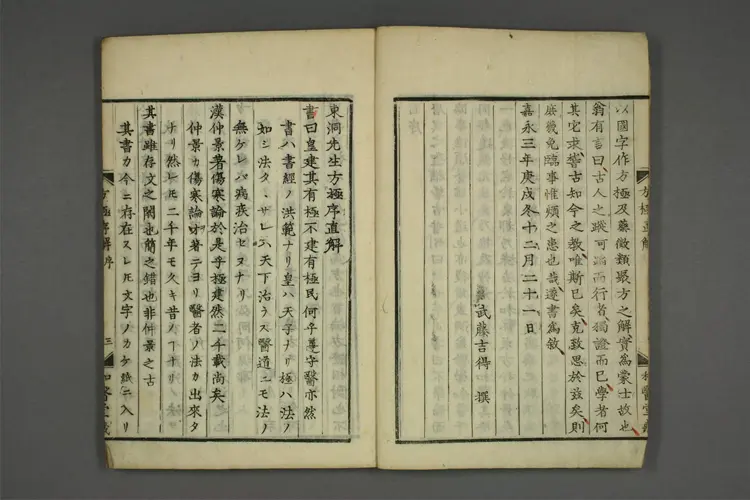 以國字作方極及藥徵類聚方之解實爲蒙士故也
翁有言曰古人之蹤可師而行者獨證而已學者何
其它求嘗古知今之教唯斯已矣克致思於茲矣則
庶幾免臨事惟煩之患也哉遂書爲敘
嘉永三年庚戌冬十二月二十一日
武藤吉得 撰
方極直解
東洞先生方極序直解
書曰皇建其有極不建有極民何乎遵守醫亦然
書ハ書經ノ洪範ナリ皇ハ天子ナリ極ハ法ノ
如シ法タヽザレハ天下治ラス醫道ニモ法ノ
無ケレバ病疾治セヌナリ
漢仲景著傷寒論於是乎極建然二千載尚矣
仲景カ傷寒論ヲ著テヨリ醫者ノ法カ出來タ
ナリ然レモ二千年モ久キ昔ノヿナリ
其書雖存文之闕也簡之錯也非仲景之古
其書カ今ニ存在スレモ文字ノカケ紙ニ入リ
方極序解 序
三